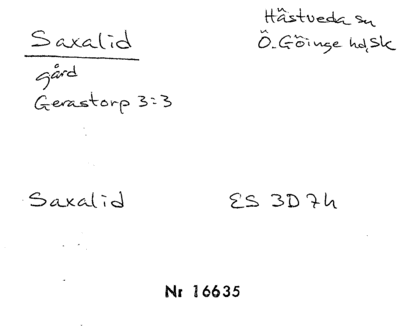 Saxalid
gård
Gerastorp 3:3
Hästveda sn
Ö. Göinge hd, Sk
Saxalid
ES 3D7h
Nr 16635